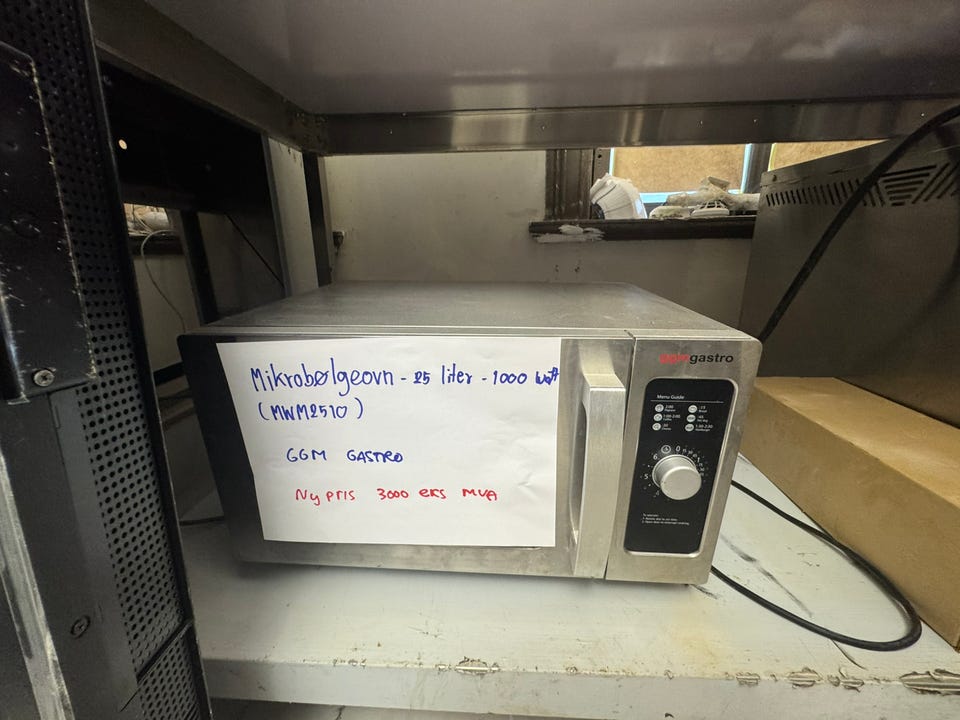 Mikrobølgeovn - 25 liter - 1000 watt
(MWM2510)
GGM GASTRO
Ny pris 3000 eks MVA
ggmgastro
Menu Guide